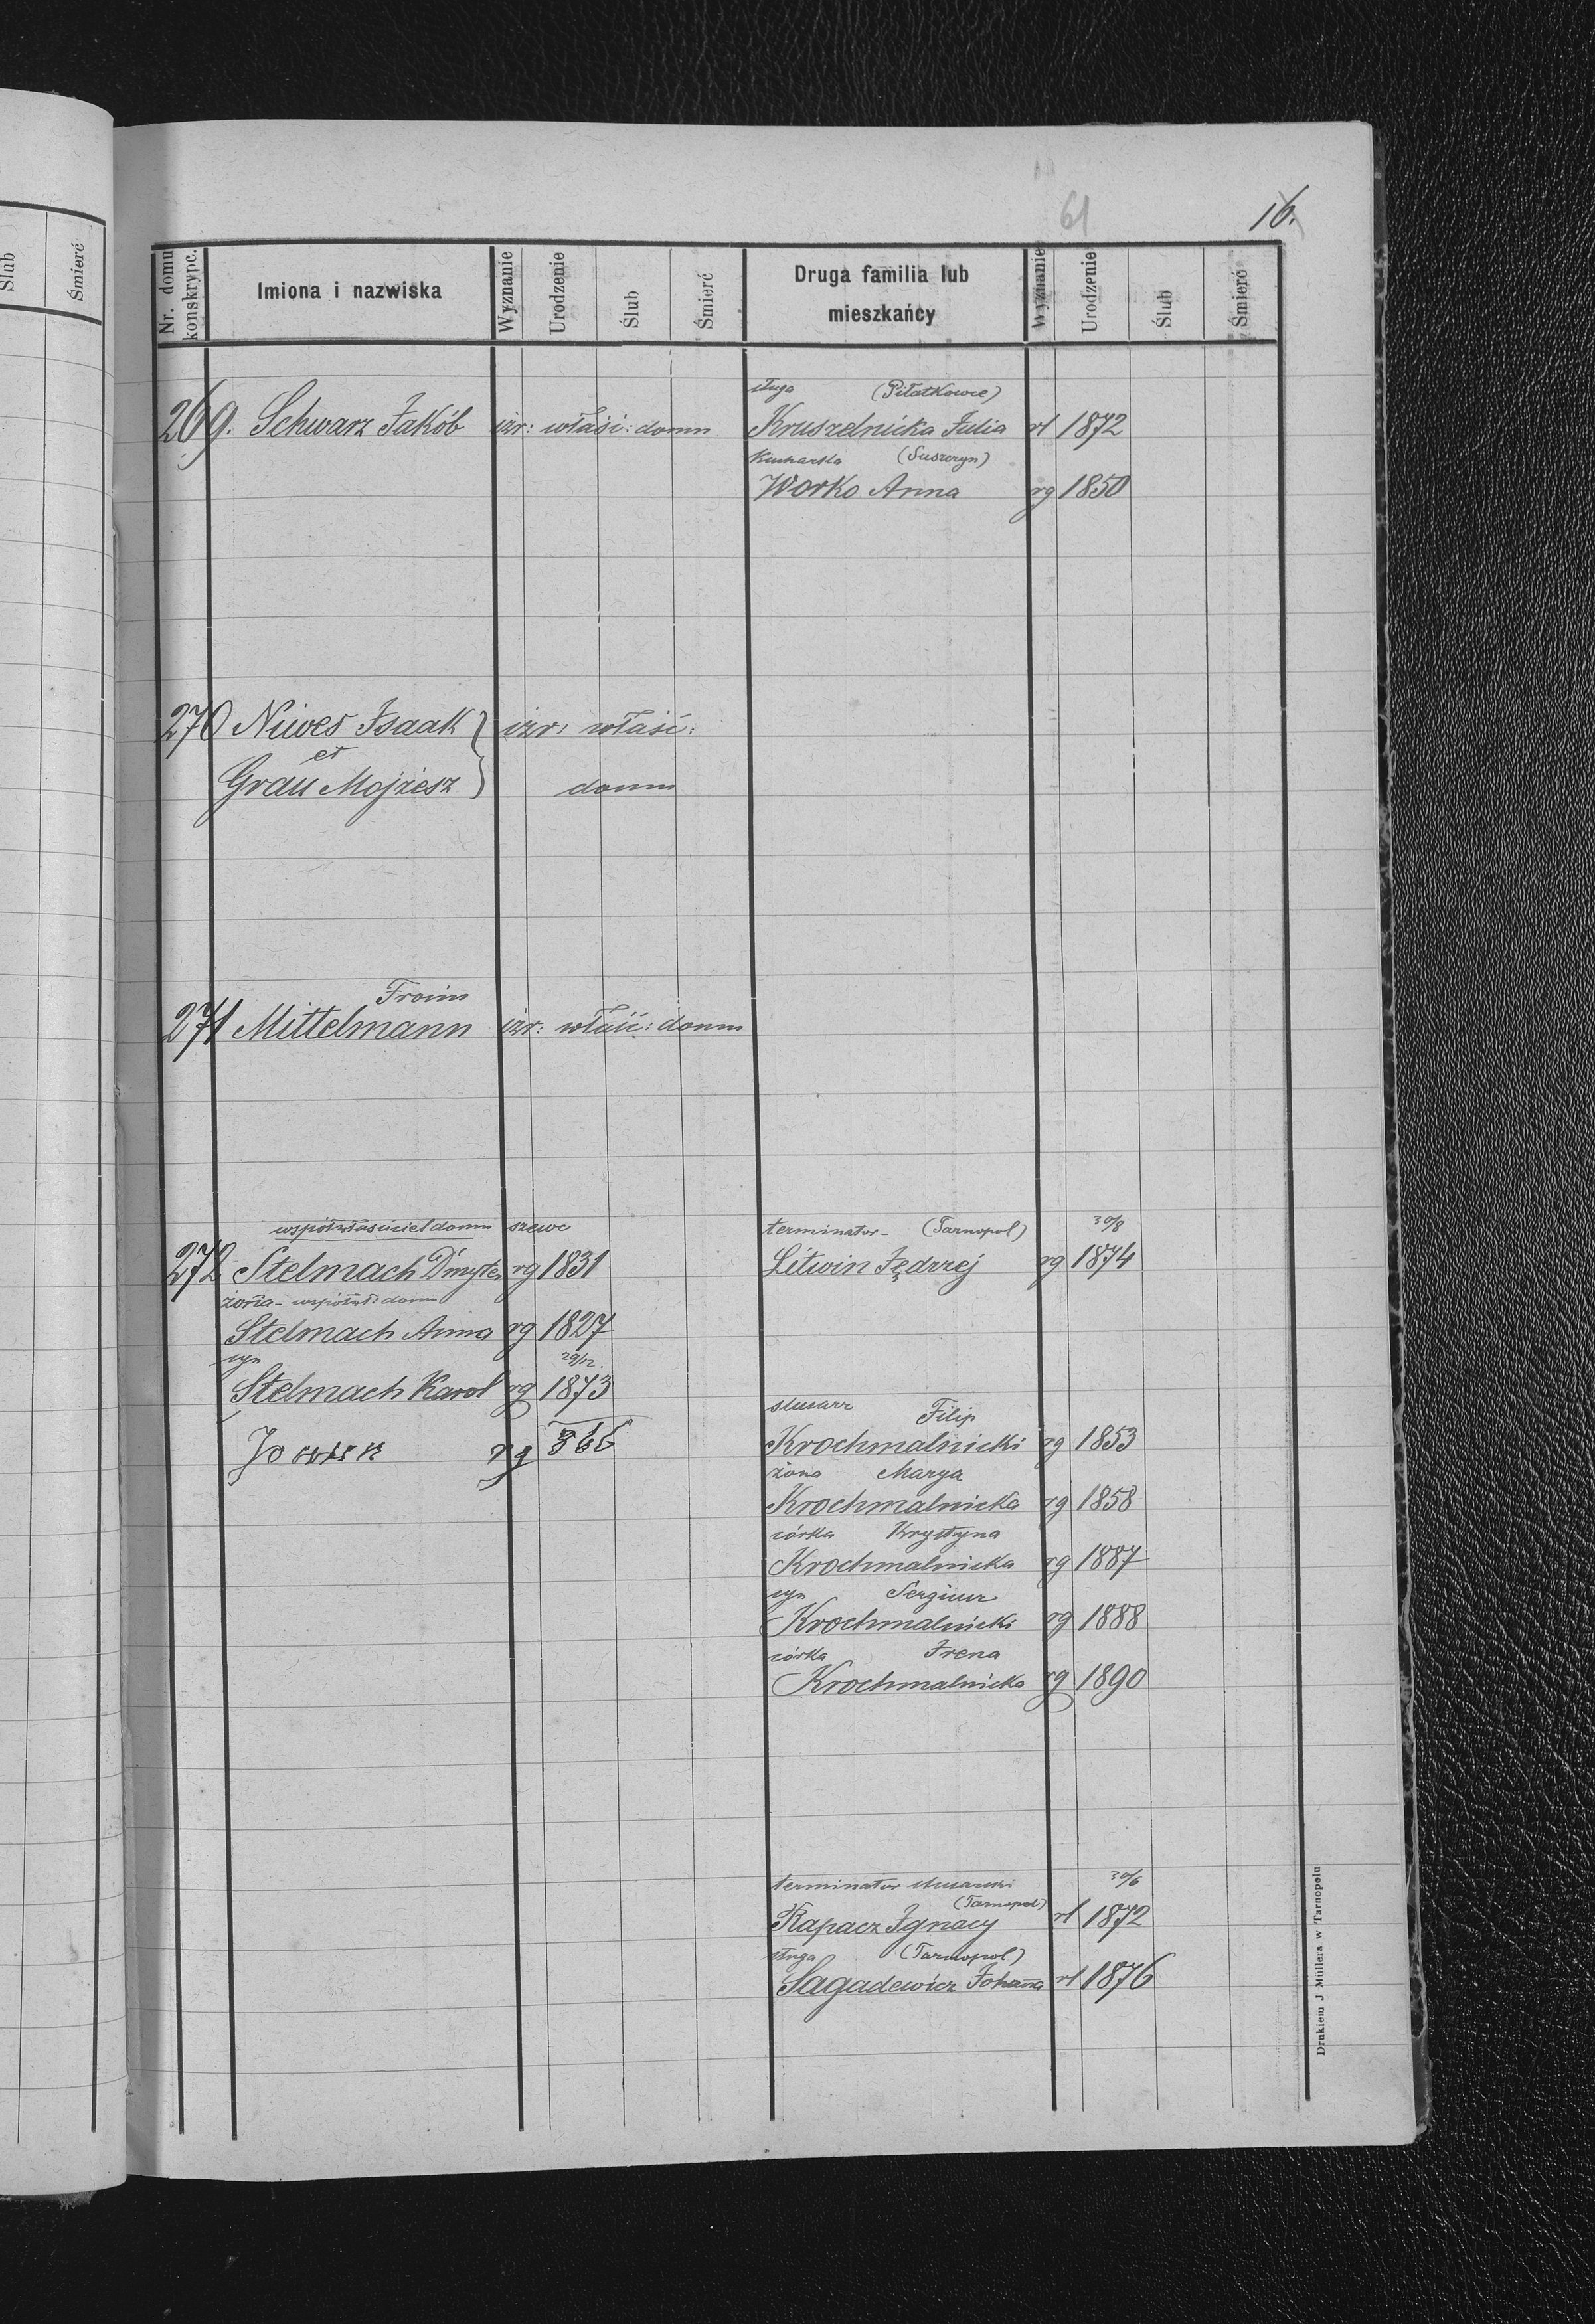 Ślub
Śmierć
61
16.
Nr. domu konskrypc.
Imiona i nazwiska
Wyznanie
Urodzenie
Ślub
Śmierć
Druga familia lub
mieszkańcy
Wyznanie
Urodzenie
Ślub
Śmierć
sługa (Piłatkowce)
269. Schwarz Jakób izr: właśc: domu Kruszelnicka Julia rł 1872
Kucharka (Suszczyn)
Worko Anna rg 1850
270 Niwes Isaak izr: właść:
et
Grau Mojżesz domu
Froim
271 Mittelmann izr: właść: domu
współwłaściciel domu szewc terminator - (Tarnopol) 30/8
272 Stelmach Dmyter rg 1831 Litwin Jędrzej rg 1874
żona - współwł: domu
Stelmach Anna rg 1827
syn 29/12.
Stelmach Karol rg 1873
ślusarz Filip
Krochmalnicki rg 1853
rg 866
żona Marya
Krochmalnicka rg 1858
córka Krystyna
Krochmalnicka rg 1887
syn Sergiusz
Krochmalnicki rg 1888
córka Irena
Krochmalnicka rg 1890
terminator ślusarski 30/6
(Tarnopol)
Kapacz Ignacy rł 1872
sługa (Tarnopol)
Sagadewicz Johanna rł 1876
Drukiem J Müllera w Tarnopolu